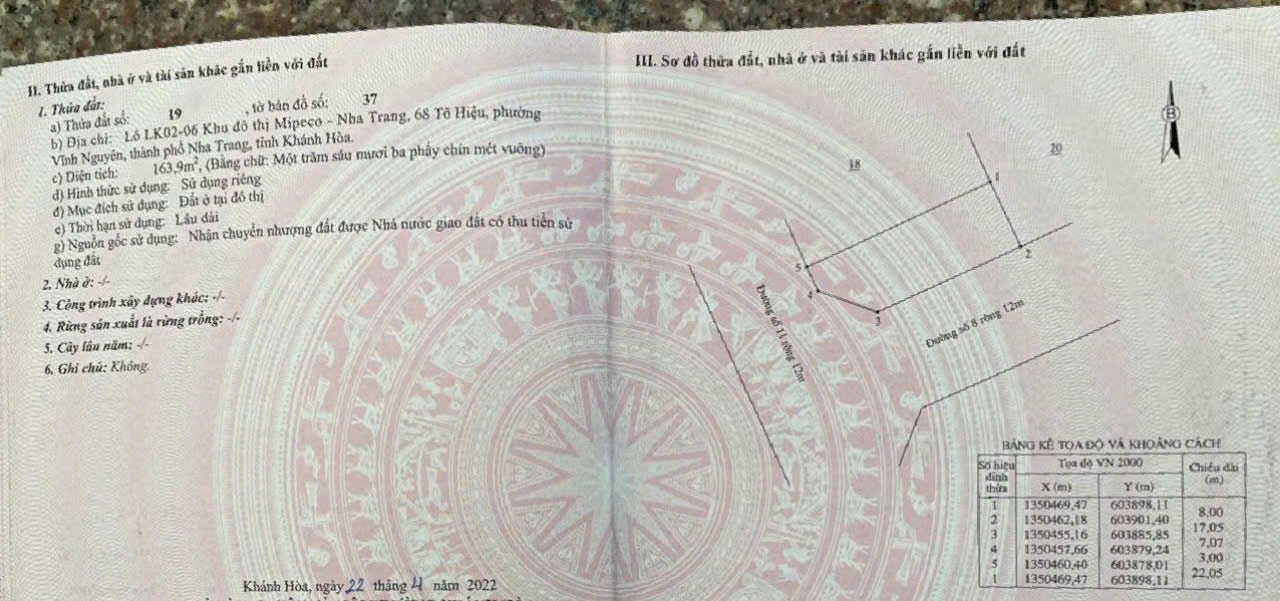 II. Thửa đất, nhà ở và tài sản khác gắn liền với đất
1. Thửa đất:
a) Thửa đất số: 19 , tờ bản đồ số: 37
b) Địa chỉ: Lô LK02-06 Khu đô thị Mipeco - Nha Trang, 68 Tô Hiệu, phường
Vĩnh Nguyên, thành phố Nha Trang, tỉnh Khánh Hòa.
c) Diện tích: 163,9m², (Bằng chữ: Một trăm sáu mươi ba phẩy chín mét vuông)
d) Hình thức sử dụng: Sử dụng riêng
đ) Mục đích sử dụng: Đất ở tại đô thị
e) Thời hạn sử dụng: Lâu dài
g) Nguồn gốc sử dụng: Nhận chuyển nhượng đất được Nhà nước giao đất có thu tiền sử
dụng đất
2. Nhà ở: -/-
3. Công trình xây dựng khác: -/-
4. Rừng sản xuất là rừng trồng: -/-
5. Cây lâu năm: -/-
6. Ghi chú: Không.
Khánh Hòa, ngày 22 tháng 4 năm 2022
III. Sơ đồ thửa đất, nhà ở và tài sản khác gắn liền với đất
B
18
20
1
2
3
4
5
Đường số 11 rộng 12m
Đường số 8 rộng 12m
BẢNG KÊ TỌA ĐỘ VÀ KHOẢNG CÁCH
Số hiệu đỉnh thửa Tọa độ VN 2000 Chiều dài (m)
X (m) Y (m)
1 1350469,47 603898,11
8,00
2 1350462,18 603901,40
17,05
3 1350455,16 603885,85
7,07
4 1350457,66 603879,24
3,00
5 1350460,40 603878,01
22,05
1 1350469,47 603898,11